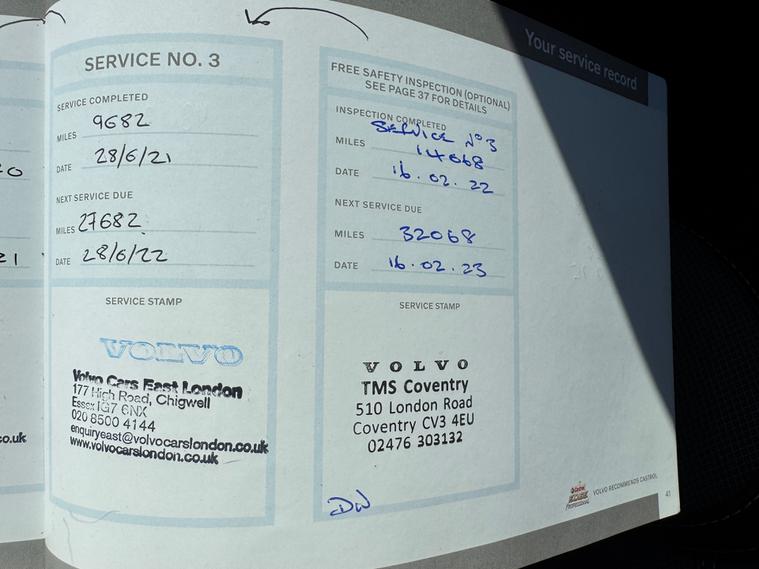 Your service record
SERVICE NO. 3
SERVICE COMPLETED
MILES 9682
DATE 28/6/21
NEXT SERVICE DUE
MILES 27682
DATE 28/6/22
SERVICE STAMP
VOLVO
Volvo Cars East London
177 High Road, Chigwell
Essex IG7 6NX
020 8500 4144
enquiryeast@volvocarslondon.co.uk
www.volvocarslondon.co.uk
FREE SAFETY INSPECTION (OPTIONAL)
SEE PAGE 37 FOR DETAILS
INSPECTION COMPLETED
SERVICE Nº3
MILES 14068
DATE 16.02.22
NEXT SERVICE DUE
MILES 32068
DATE 16.02.23
SERVICE STAMP
VOLVO
TMS Coventry
510 London Road
Coventry CV3 4EU
02476 303132
DW
Castrol
EDGE
PROFESSIONAL
VOLVO RECOMMENDS CASTROL
41
co.uk